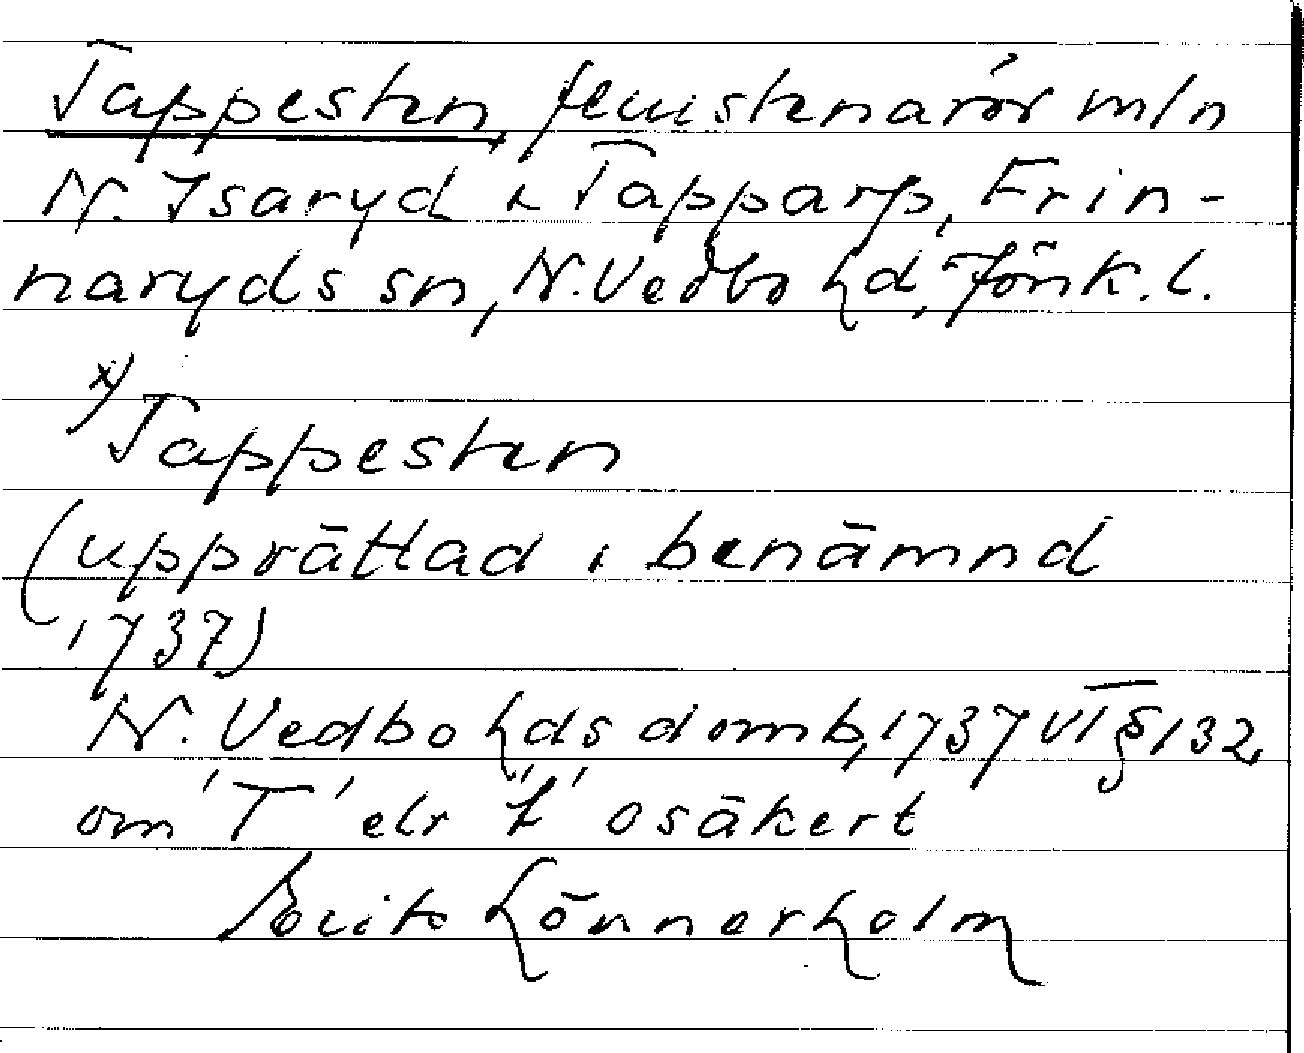 Tappesten, femstenarör m/n
N. Isaryd & Tapparp, Frin-
naryds sn, N. Vedbo hd, Jönk. l.
x) Tappesten
(upprättad & benämnd
1737)
N. Vedbo hds domb, 1737 VT § 132
om 'T' elr 'L' osäkert
Lönnerholm